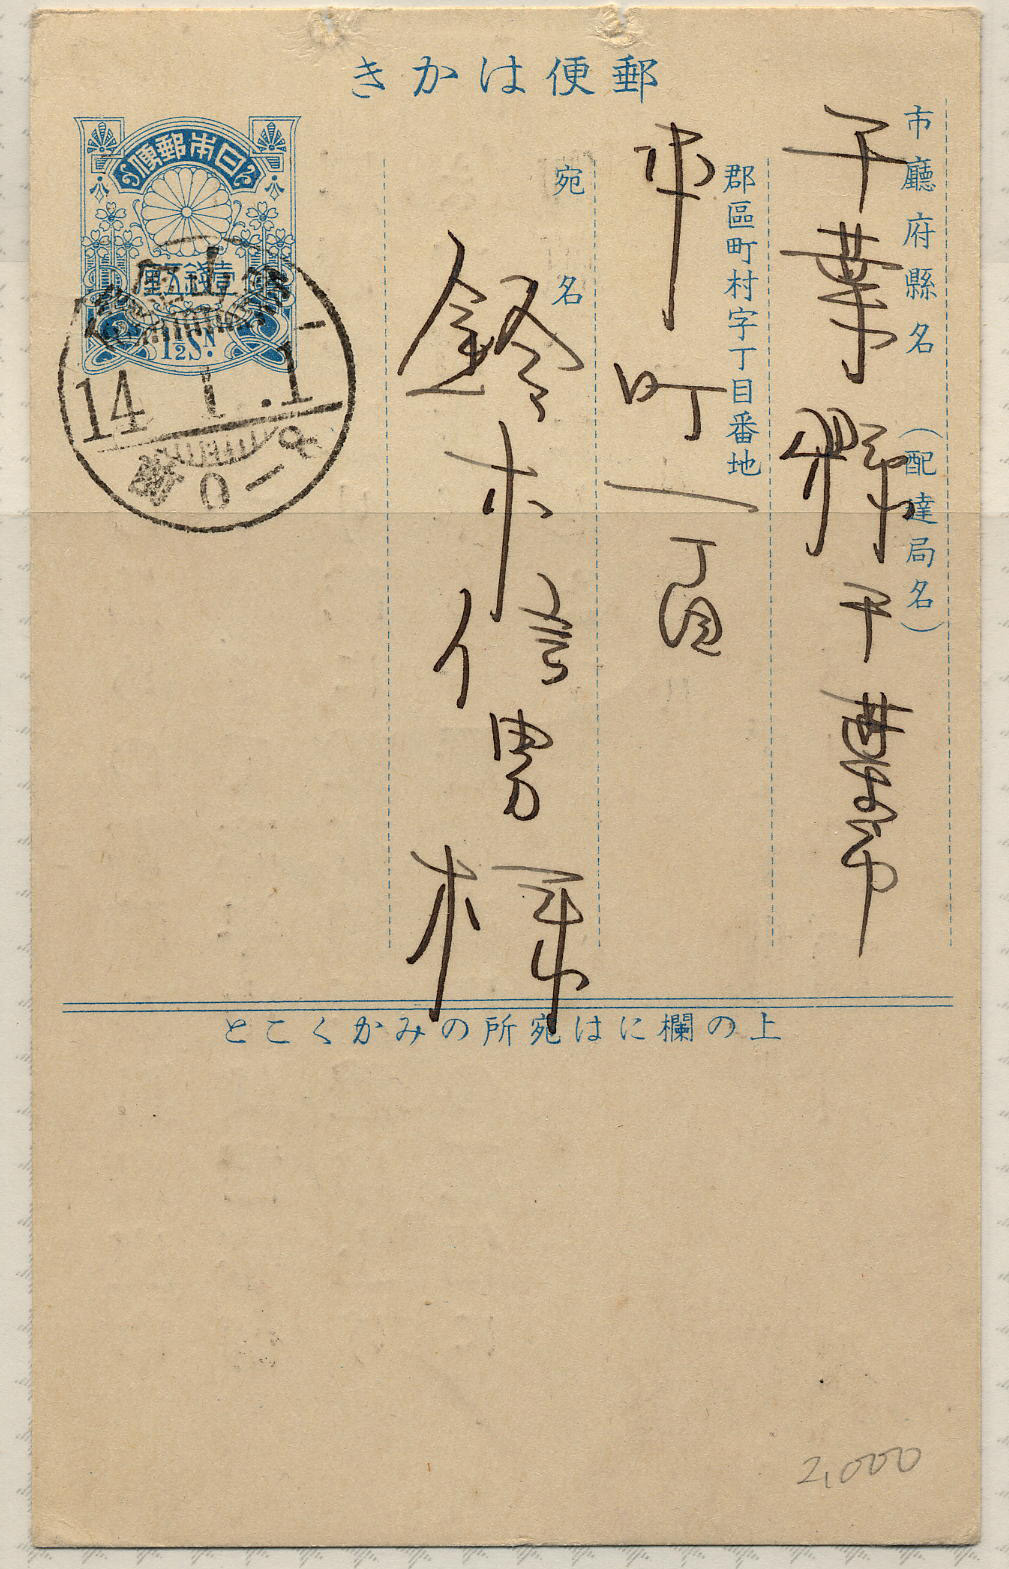 郵便はかき
日本郵便
壹錢五厘
1½Sn.
14.1.1
0-8
市廳府縣名（配達局名）
千葉縣千葉市
郡區町村字丁目番地
本町一丁目
宛名
鈴木信男様
上の欄には宛所のみかくこと
2,000